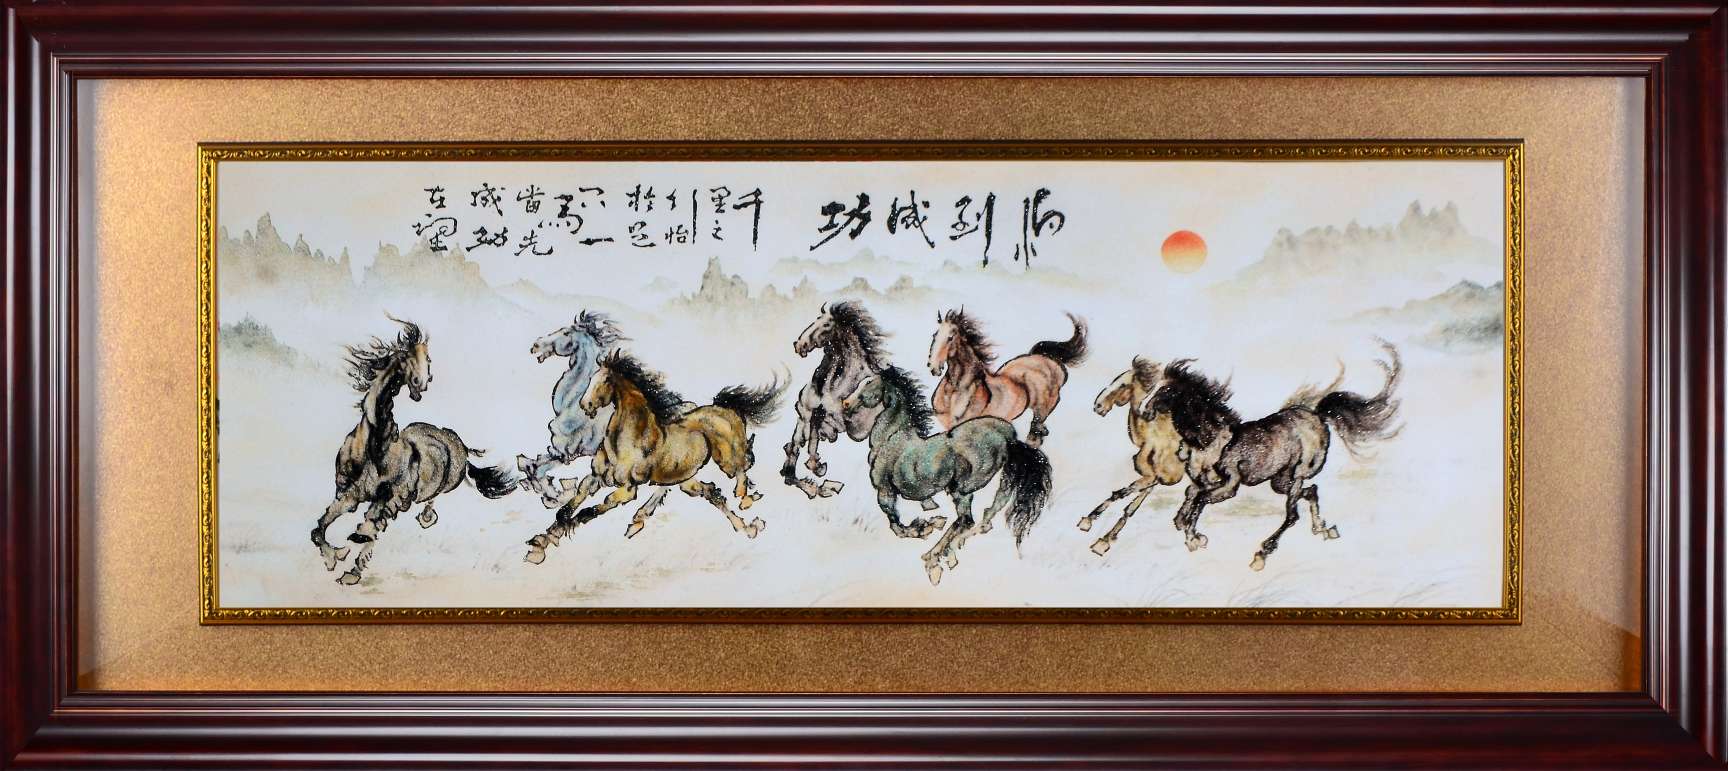 馬到成功
千
里之
行始
於足
下一
馬
當先
成功
在望